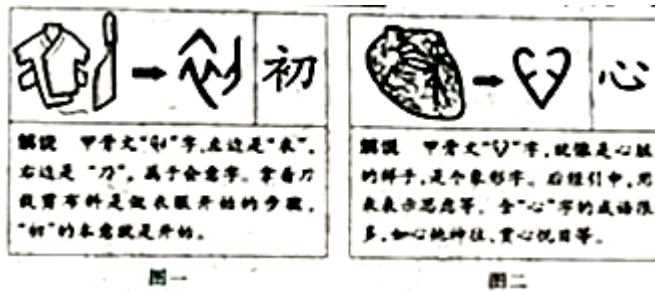 初
解说 甲骨文“ ”字,左边是“衣”,
右边是“刀”,属于会意字。拿着刀
裁剪布料是做衣服开始的步骤,
“初”的本意就是开始。
图一
心
解说 甲骨文“ ”字,就像是心脏
的样子,是个象形字。后经引申,用
来表示思虑等。含“心”字的成语很
多,如心驰神往、赏心悦目等。
图二